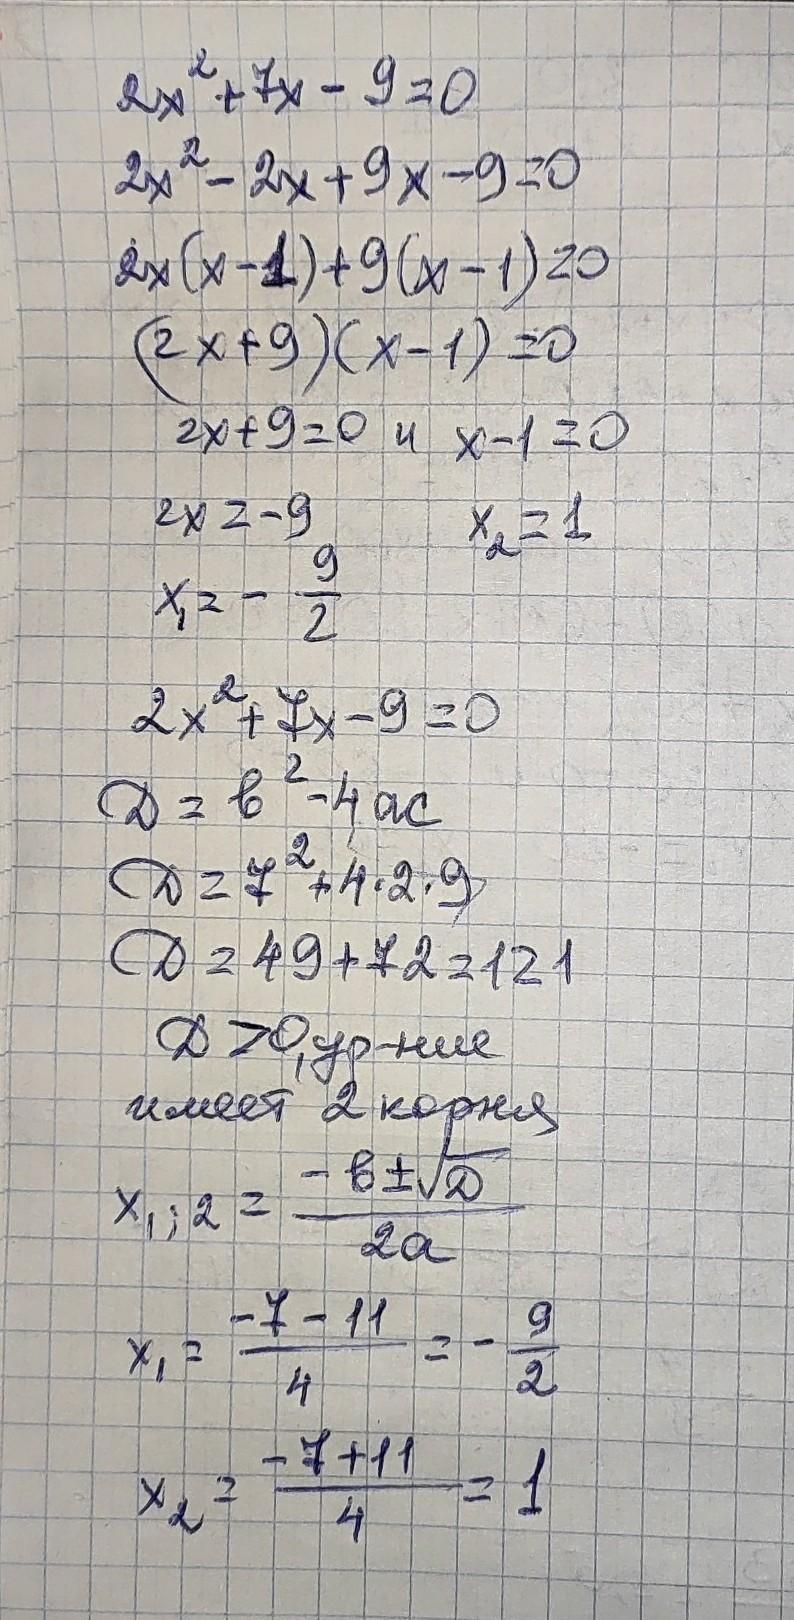 2x² + 7x - 9 = 0
2x² - 2x + 9x - 9 = 0
2x(x - 1) + 9(x - 1) = 0
(2x + 9)(x - 1) = 0
2x + 9 = 0 и x - 1 = 0
2x = -9 x₂ = 1
x₁ = - 9/2
2x² + 7x - 9 = 0
D = b² - 4ac
D = 7² + 4·2·9
D = 49 + 72 = 121
D > 0, ур-ние
имеет 2 корня
x₁;₂ = (-b ± √D)/2a
x₁ = (-7 - 11)/4 = - 9/2
x₂ = (-7 + 11)/4 = 1